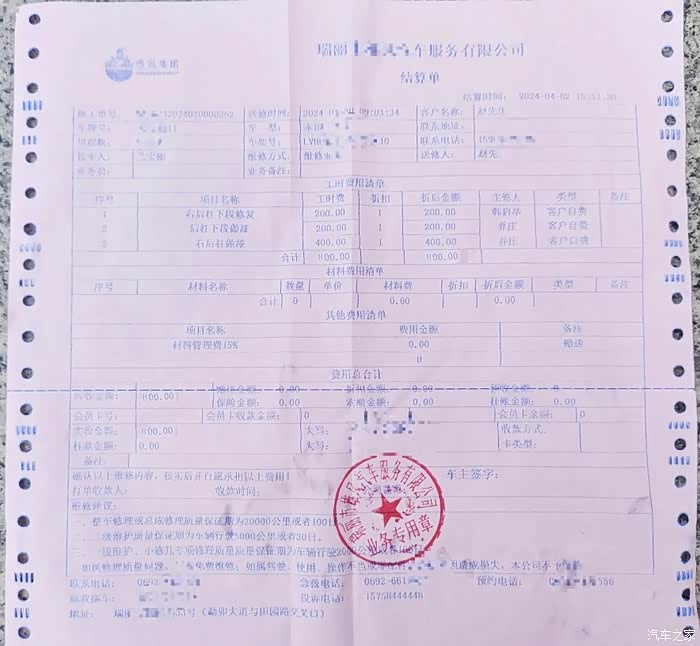 瑞丽 车服务有限公司
结算单
结算时间: 2024-04-02 15:51:30
施工单号: 2024030000252 送修时间: 09:03:34 客户名称: 赵先生
车牌号: 车 型: 本田 联系地址:
车架号: LVH 10 联系电话: 159
接车人: 维修方式: 维修 送修人: 赵先
业务员: 业务备注:
工时费用清单
序号 项目名称 工时费 折扣 折后金额 主修人 类型 备注
1 右后杠下段修复 200.00 1 200.00 韩启举 客户自费
2 后杠下段做漆 200.00 1 200.00 乔庄 客户自费
3 右后杠做漆 400.00 1 400.00 乔庄 客户自费
合计 800.00 800.00
材料费用清单
序号 材料名称 数量 单价 材料费 折扣 折后金额 类型 备注
合计 0 0.00 0.00
其他费用清单
项目名称 费用金额 备注
材料管理费15% 0.00 赠送
0
费用总合计
应收金额: 800.00 0.00 折扣金额: 0.00 预收金额: 0
保险金额: 0.00 索赔金额: 0.00 挂账金额: 0.00
会员卡号: 会员卡收款金额: 0 会员卡余额: 0
实收金额: 800.00 大写: 收款方式:
挂款金额: 0.00 大写: 卡类型:
备注:
确认以上维修内容,核实后并自愿承担以上费用! 车主签字:
打单收款人: 收款时间:
维修建议:
一、整车修理或总成修理质量保证期为20000公里或者100日
二、二级维护质量保证期为车辆行驶5000公里或者30日。
三、一级维护、小修及专项修理质量质量保证期为车辆行驶2000公里或者
如属修理质量问题, 免费维修;如属驾驶、使用、操作不当或 造成损失,本公司不
联系电话: 0692 急救电话: 0692-661 预约电话: 556
投诉电话: 15758444448
地址: 瑞丽 号(勐卯大道与田园路交叉口)
汽车服务有限公司
业务专用章
汽车之家